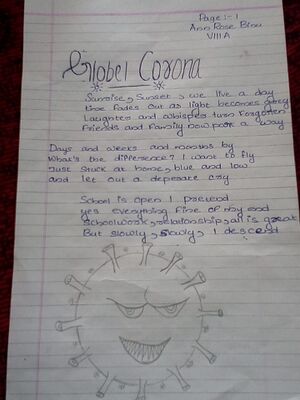 Page :- 1
Ann Rose Binu
VIII A
Globel Corona
Sunrise, Sunset, we live a day
time fades out as light becomes grey
Laughter and whisper turn Forgotten
Friends and Family now poor a way
Days and weeks and months by
What's the difference? I want to fly
Just stuck at home, blue and low
and let out a deperate cry
School is open I pretend
yes everything fine of my end
Schoolwork, relationship, all is great
But slowly, slowly, I descend